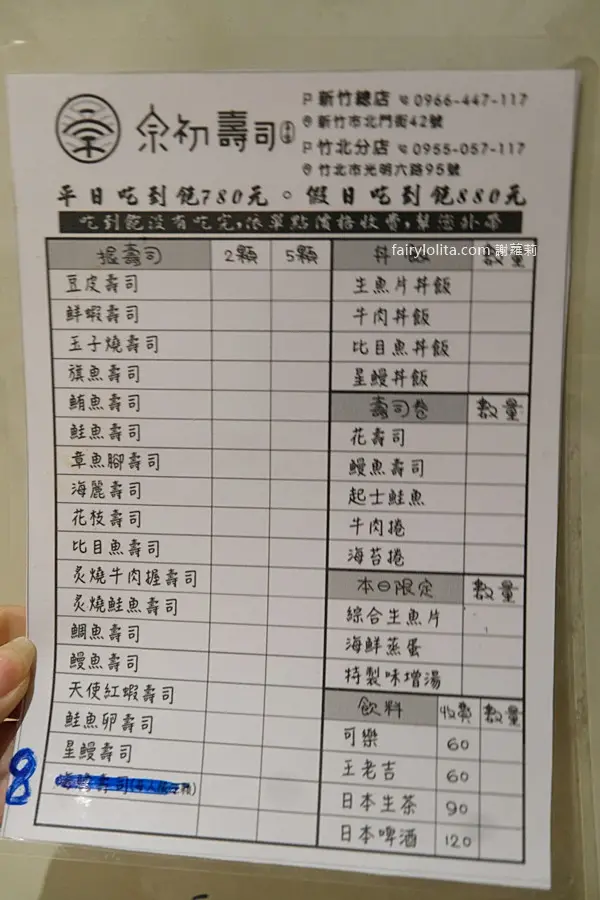 京初壽司
新竹總店 0966-447-117
新竹市北門街42號
竹北分店 0955-057-117
竹北市光明六路95號
平日吃到飽780元。假日吃到飽880元
吃到飽沒有吃完,依單點價格收費,幫您外帶
fairylolita.com 謝蘿莉
握壽司 2顆 5顆
豆皮壽司
鮮蝦壽司
玉子燒壽司
旗魚壽司
鮪魚壽司
鮭魚壽司
章魚腳壽司
海麗壽司
花枝壽司
比目魚壽司
炙燒牛肉握壽司
炙燒鮭魚壽司
鯛魚壽司
鰻魚壽司
天使紅蝦壽司
鮭魚卵壽司
星鰻壽司
壽司
8
丼飯 數量
生魚片丼飯
牛肉丼飯
比目魚丼飯
星鰻丼飯
壽司卷 數量
花壽司
鰻魚壽司
起士鮭魚
牛肉捲
海苔捲
本日限定 數量
綜合生魚片
海鮮蒸蛋
特製味增湯
飲料 收費 數量
可樂 60
王老吉 60
日本生茶 90
日本啤酒 120